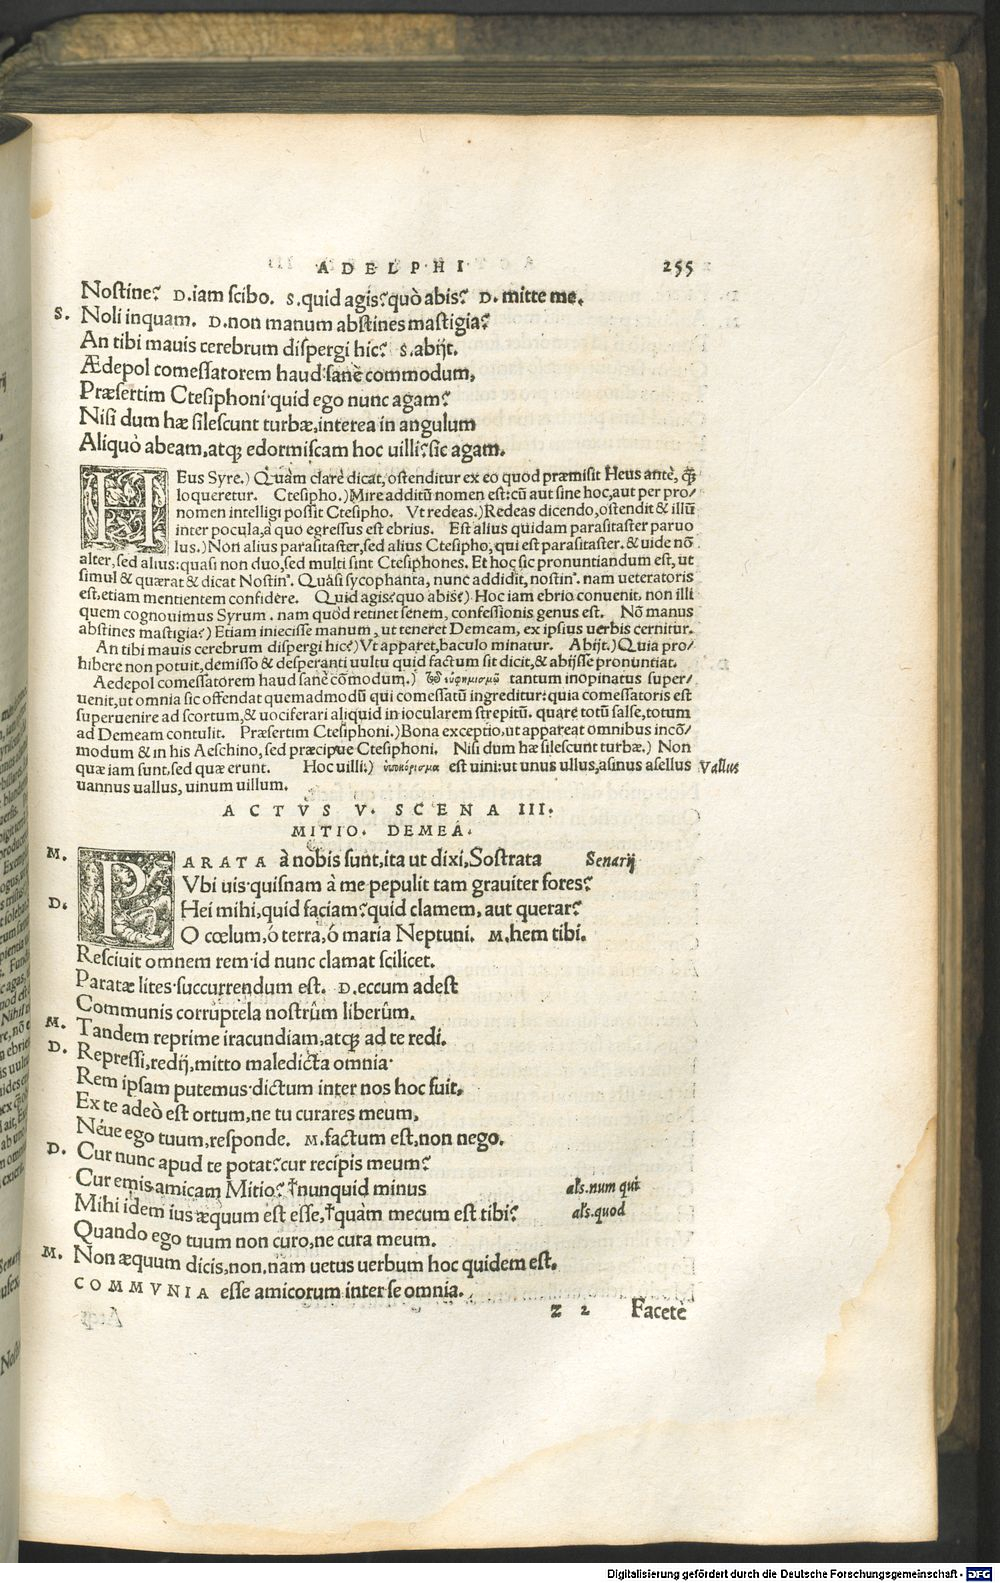 ADELPHI 255
Nostine? D.iam scibo. S.quid agis?quò abis? D.mitte me.
S. Noli inquam. D.non manum abstines mastigia?
An tibi mauis cerebrum dispergi hic? S.abijt.
Ædepol comessatorem haud sanè commodum,
Præsertim Ctesiphoni·quid ego nunc agam?
Nisi dum hæ silescunt turbæ,interea in angulum
Aliquò abeam,atqꝫ edormiscam hoc uilli?sic agam.
HEus Syre.) Quàm clarè dicat, ostenditur ex eo quod præmisit Heus antè, q̃
loqueretur. Ctesipho.)Mire additũ nomen est:cũ aut sine hoc,aut per pro/
nomen intelligi possit Ctesipho. Vt redeas.)Redeas dicendo,ostendit & illũ
inter pocula,à quo egressus est ebrius. Est alius quidam parasitaster paruo
lus.)Non alius parasitaster,sed alius Ctesipho, qui est parasitaster.& uide nõ
alter,sed alius:quasi non duo,sed multi sint Ctesiphones. Et hoc sic pronuntiandum est, ut
simul & quærat & dicat Nostin'. Quasi sycophanta, nunc addidit, nostin'. nam ueteratoris
est,etiam mentientem confidere. Quid agis?quo abis?) Hoc iam ebrio conuenit, non illi
quem cognouimus Syrum. nam quòd retinet senem, confessionis genus est. Nõ manus
abstines mastigia?) Etiam iniecisse manum, ut teneret Demeam, ex ipsius uerbis cernitur.
An tibi mauis cerebrum dispergi hic?)Vt apparet,baculo minatur. Abijt.)Quia pro/
hibere non potuit,demisso & desperanti uultu quid factum sit dicit,& abijsse pronuntiat.
Aedepol comessatorem haud sanè cõmodum.) tantum inopinatus super/
uenit,ut omnia sic offendat quemadmodũ qui comessatũ ingreditur:quia comessatoris est
superuenire ad scortum,& uociferari aliquid in iocularem strepitũ. quare totũ salse,totum
ad Demeam contulit. Præsertim Ctesiphoni.)Bona exceptio,ut appareat omnibus incõ/
modum & in his Aeschino, sed præcipue Ctesiphoni. Nisi dum hæ silescunt turbæ.) Non
quæ iam sunt,sed quæ erunt. Hoc uilli.) ὑποκόρισμα est uini:ut unus ullus,asinus asellus Vallus
uannus uallus, uinum uillum.
ACTVS V. SCENA III.
MITIO. DEMEA.
M. PARATA à nobis sunt,ita ut dixi,Sostrata Senarij
Vbi uis·quisnam à me pepulit tam grauiter fores?
D. Hei mihi,quid faciam?quid clamem, aut querar?
O cœlum,ó terra,ó maria Neptuni. M.hem tibi.
Resciuit omnem rem·id nunc clamat scilicet.
Paratæ lites·succurrendum est. D.eccum adest
Communis corruptela nostrûm liberûm.
M. Tandem reprime iracundiam,atqꝫ ad te redi.
D. Repressi,redij,mitto maledicta omnia·
Rem ipsam putemus·dictum inter nos hoc fuit,
Ex te adeò est ortum,ne tu curares meum,
Néue ego tuum,responde. M.factum est,non nego.
D. Cur nunc apud te potat?cur recipis meum?
Cur emis amicam Mitio? †nunquid minus als.num qui
Mihi idem ius æquum est esse,†quàm mecum est tibi? als.quod
Quando ego tuum non curo,ne cura meum.
M. Non æquum dicis,non.nam uetus uerbum hoc quidem est.
COMMVNIA esse amicorum inter se omnia.
Z 2 Facete
Digitalisierung gefördert durch die Deutsche Forschungsgemeinschaft - DFG